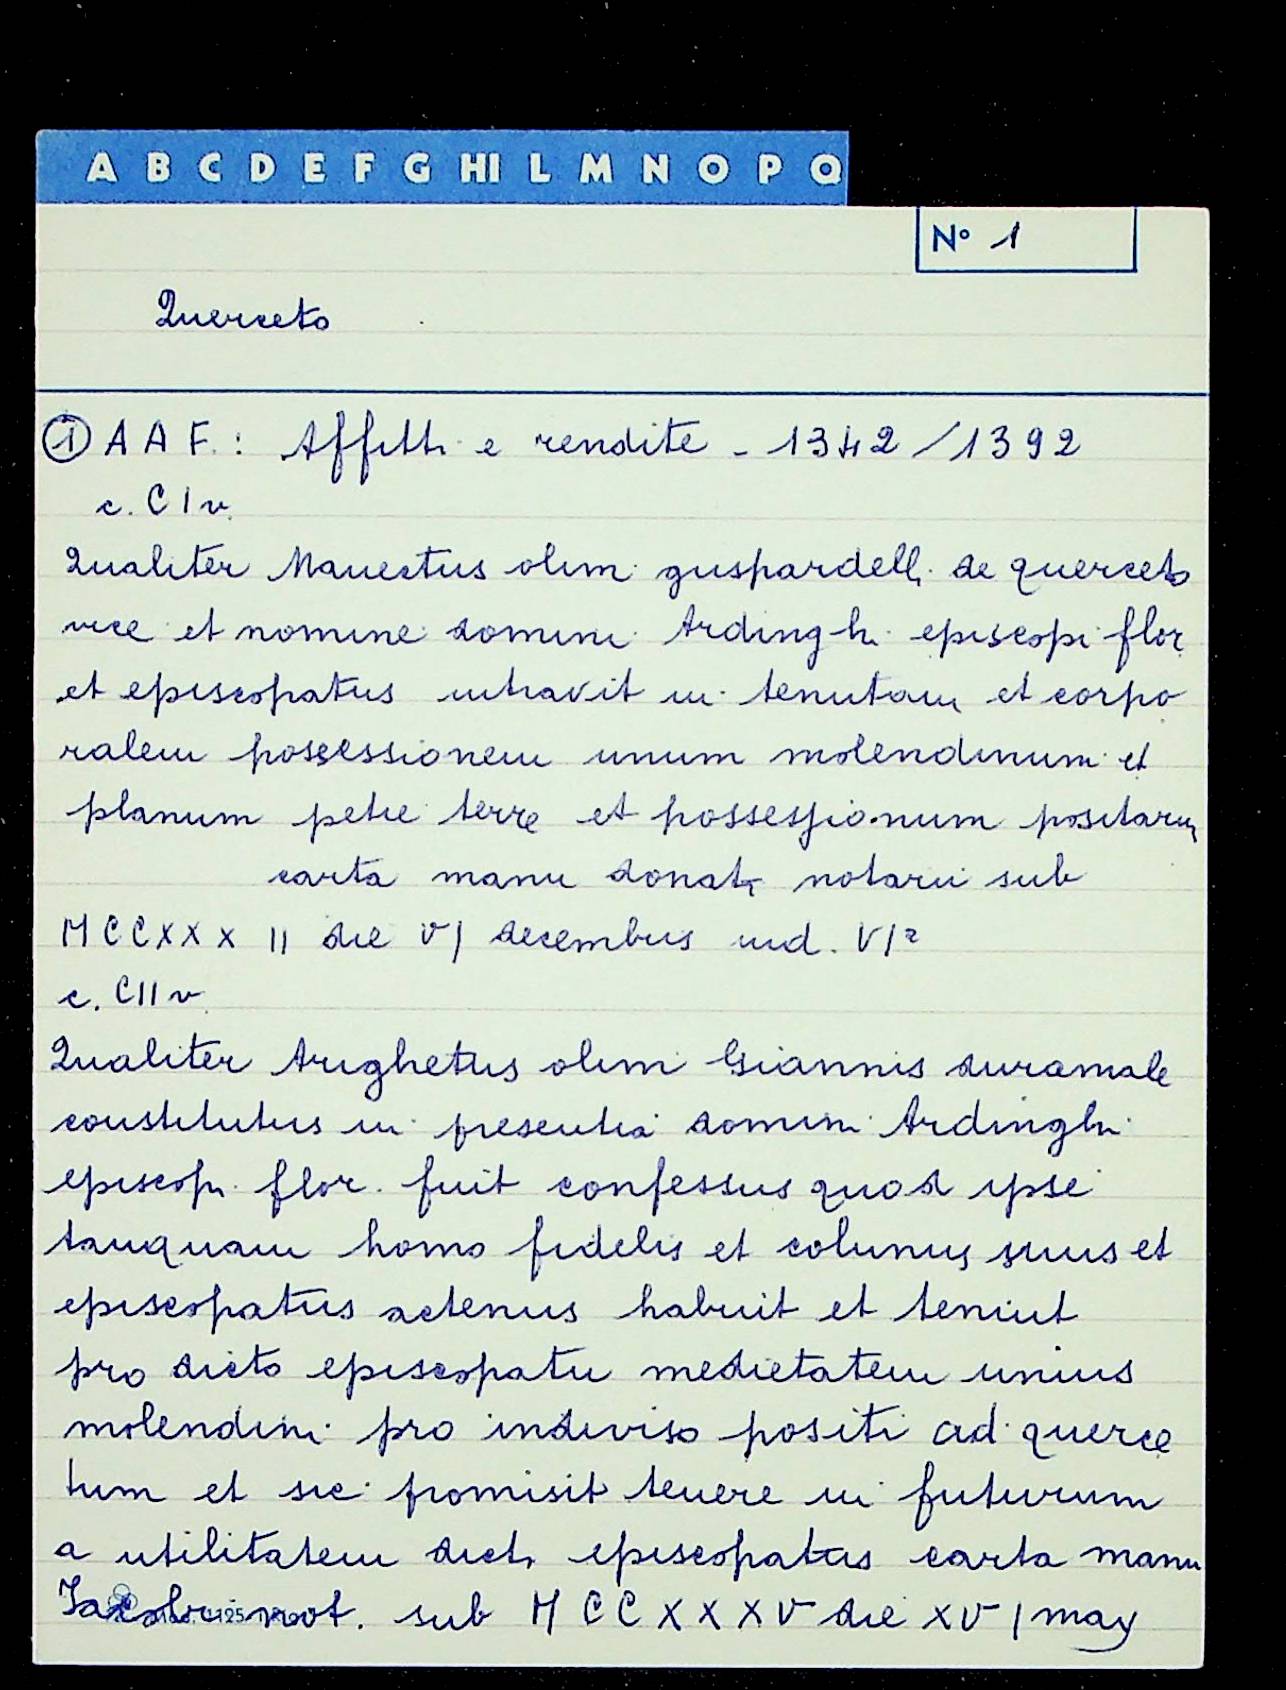 A B C D E F G HI L M N O P Q
N° 1
Querceto
① A A F. : Affitti e rendite - 1342/1392
c. CI v.
Qualiter Manectus olim guspardelli de querceto
vice et nomine domini Ardinghi episcopi flor.
et episcopatus intravit in tenutam et corpo
ralem possessionem unum molendinum et
planum petie terre et possessionum positarum
carta manu donati notarii sub
MCCXXXII die VI decembris ind. VIa
c. CII v.
Qualiter Arighetus olim Giannis duramale
constitutus in presentia domini Ardinghi
episcopi flor. fuit confessus quod ipse
tanquam homo fidelis et colunus suus et
episcopatus actenus habuit et teniut
pro dicto episcopatu medietatem unius
molendini pro indiviso positi ad querce
tum et sic promisit tenere in futurum
a utilitatem dicti episcopatus carta manu
Jacobi not. sub MCCXXXV die XVI may